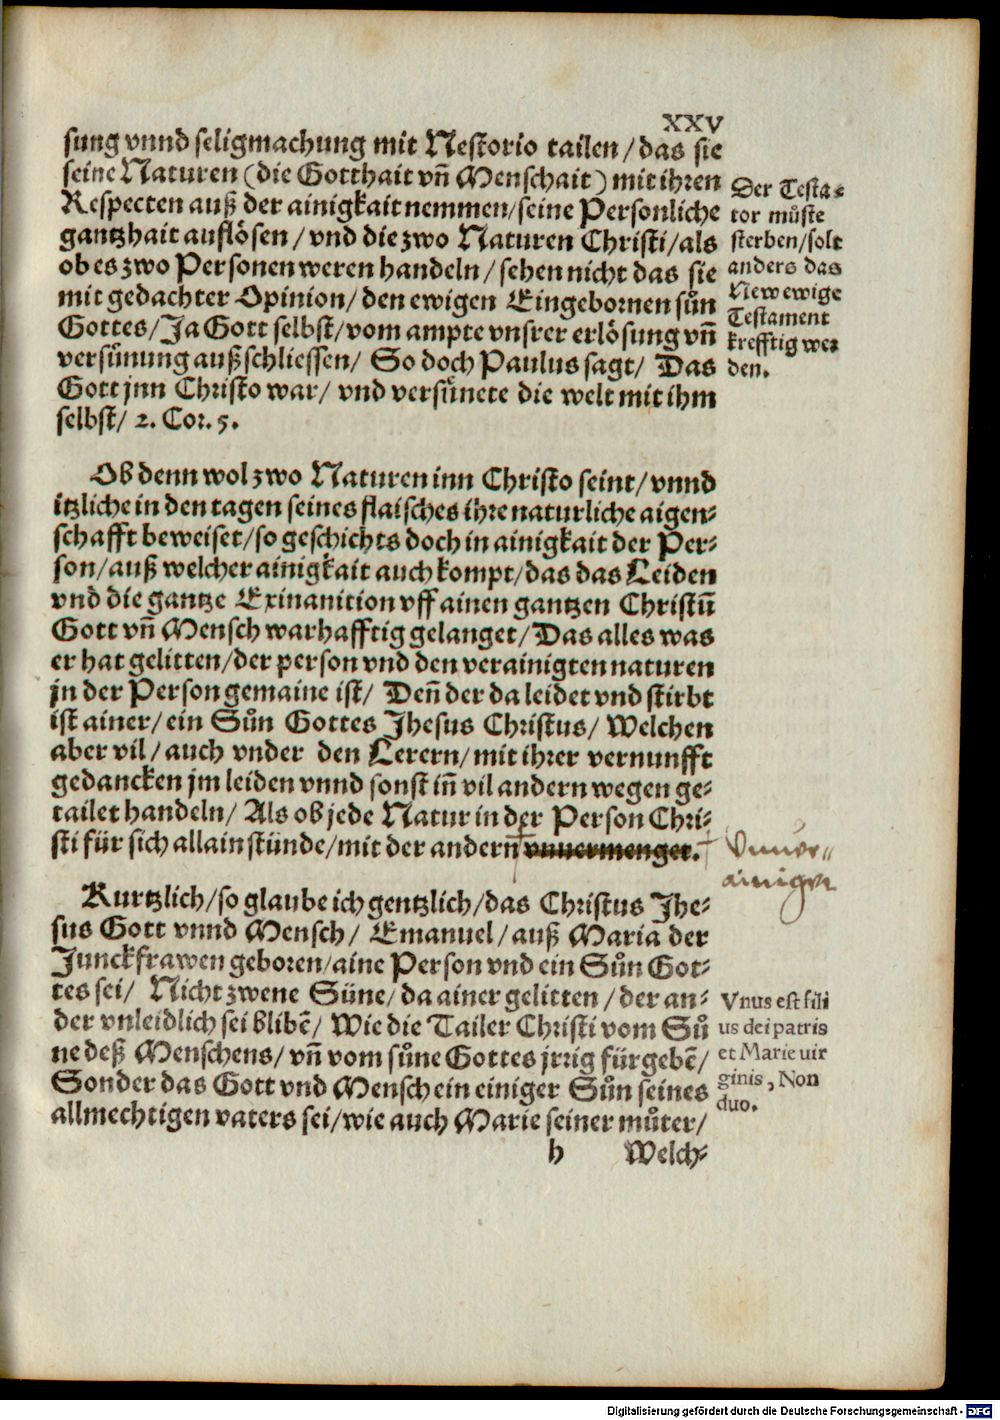 XXV
sung vnnd seligmachung mit Nestorio tailen / das sie
seine Naturen (die Gotthait vñ Menschait) mit ihren
Respecten auß der ainigkait nemmen / seine Personliche
gantzhait auflösen / vnd die zwo Naturen Christi / als
ob es zwo Personen weren handeln / sehen nicht das sie
mit gedachter Opinion / den ewigen Eingebornen sůn
Gottes / Ja Gott selbst / vom ampte vnsrer erlösung vñ
versůnung außschliessen / So doch Paulus sagt / Das
Gott jnn Christo war / vnd versůnete die welt mit ihm
selbst / 2. Cor. 5.
Der Testa-
tor můste
sterben / solt
anders das
New ewige
Testament
krefftig wer
den.
Ob denn wol zwo Naturen inn Christo seint / vnnd
itzliche in den tagen seines flaisches ihre naturliche aigen-
schafft beweiset / so geschichts doch in ainigkait der Per-
son / auß welcher ainigkait auch kompt / das das Leiden
vnd die gantze Exinanition vff ainen gantzen Christū
Gott vñ Mensch warhafftig gelanget / Das alles was
er hat gelitten / der person vnd den verainigten naturen
jn der Person gemaine ist / Deñ der da leidet vnd stirbt
ist ainer / ein Sůn Gottes Jhesus Christus / Welchen
aber vil / auch vnder den Lerern / mit ihrer vernunfft
gedancken jm leiden vnnd sonst iñ vil andern wegen ge-
tailet handeln / Als ob jede Natur in der Person Chri-
sti für sich allain stünde / mit der andern vnuermenget.
Vnuer-
ainiget
Kurtzlich / so glaube ich gentzlich / das Christus Jhe-
sus Gott vnnd Mensch / Emanuel / auß Maria der
Junckfrawen geboren / aine Person vnd ein Sůn Got-
tes sei / Nicht zwene Süne / da ainer gelitten / der an-
der vnleidlich sei blibē / Wie die Tailer Christi vom Sů
ne deß Menschens / vñ vom sůne Gottes jrrig fürgebē /
Sonder das Gott vnd Mensch ein einiger Sůn seines
allmechtigen vaters sei / wie auch Marie seiner můter /
Vnus est fili
us dei patris
et Marie uir
ginis, Non
duo.
h Welch-
Digitalisierung gefördert durch die Deutsche Forschungsgemeinschaft - DFG